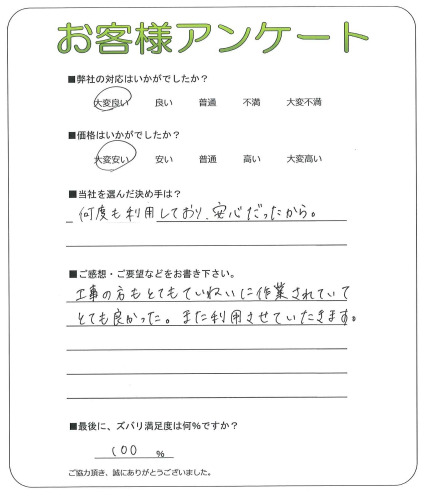 お客様アンケート
■弊社の対応はいかがでしたか？
大変良い 良い 普通 不満 大変不満
■価格はいかがでしたか？
大変安い 安い 普通 高い 大変高い
■当社を選んだ決め手は？
何度も利用しており、安心だったから。
■ご感想・ご要望などをお書き下さい。
工事の方もとてもていねいに作業されていて
とても良かった。また利用させていたきます。
■最後に、ズバリ満足度は何%ですか？
100 %
ご協力頂き、誠にありがとうございました。